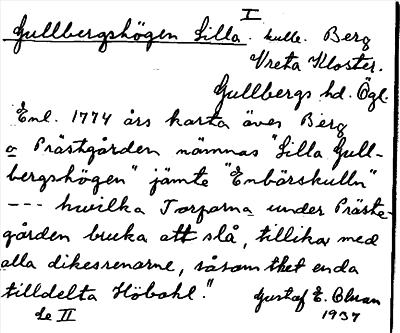 I
Gullbergshögen Lilla. kulle. Berg
Vreta Kloster.
Gullbergs hd. Ögl.
Enl. 1774 års karta över Berg
o Prästgården nämnas "Lilla Gull-
bergshögen" jämte "Enbärskulln"
--- hwilka Torparna under Präste-
gården bruka att slå, tillika med
alla dikesrenarne, såsom thet enda
tilldelta Höbohl."
Gustaf E. Olsson
se II
1937